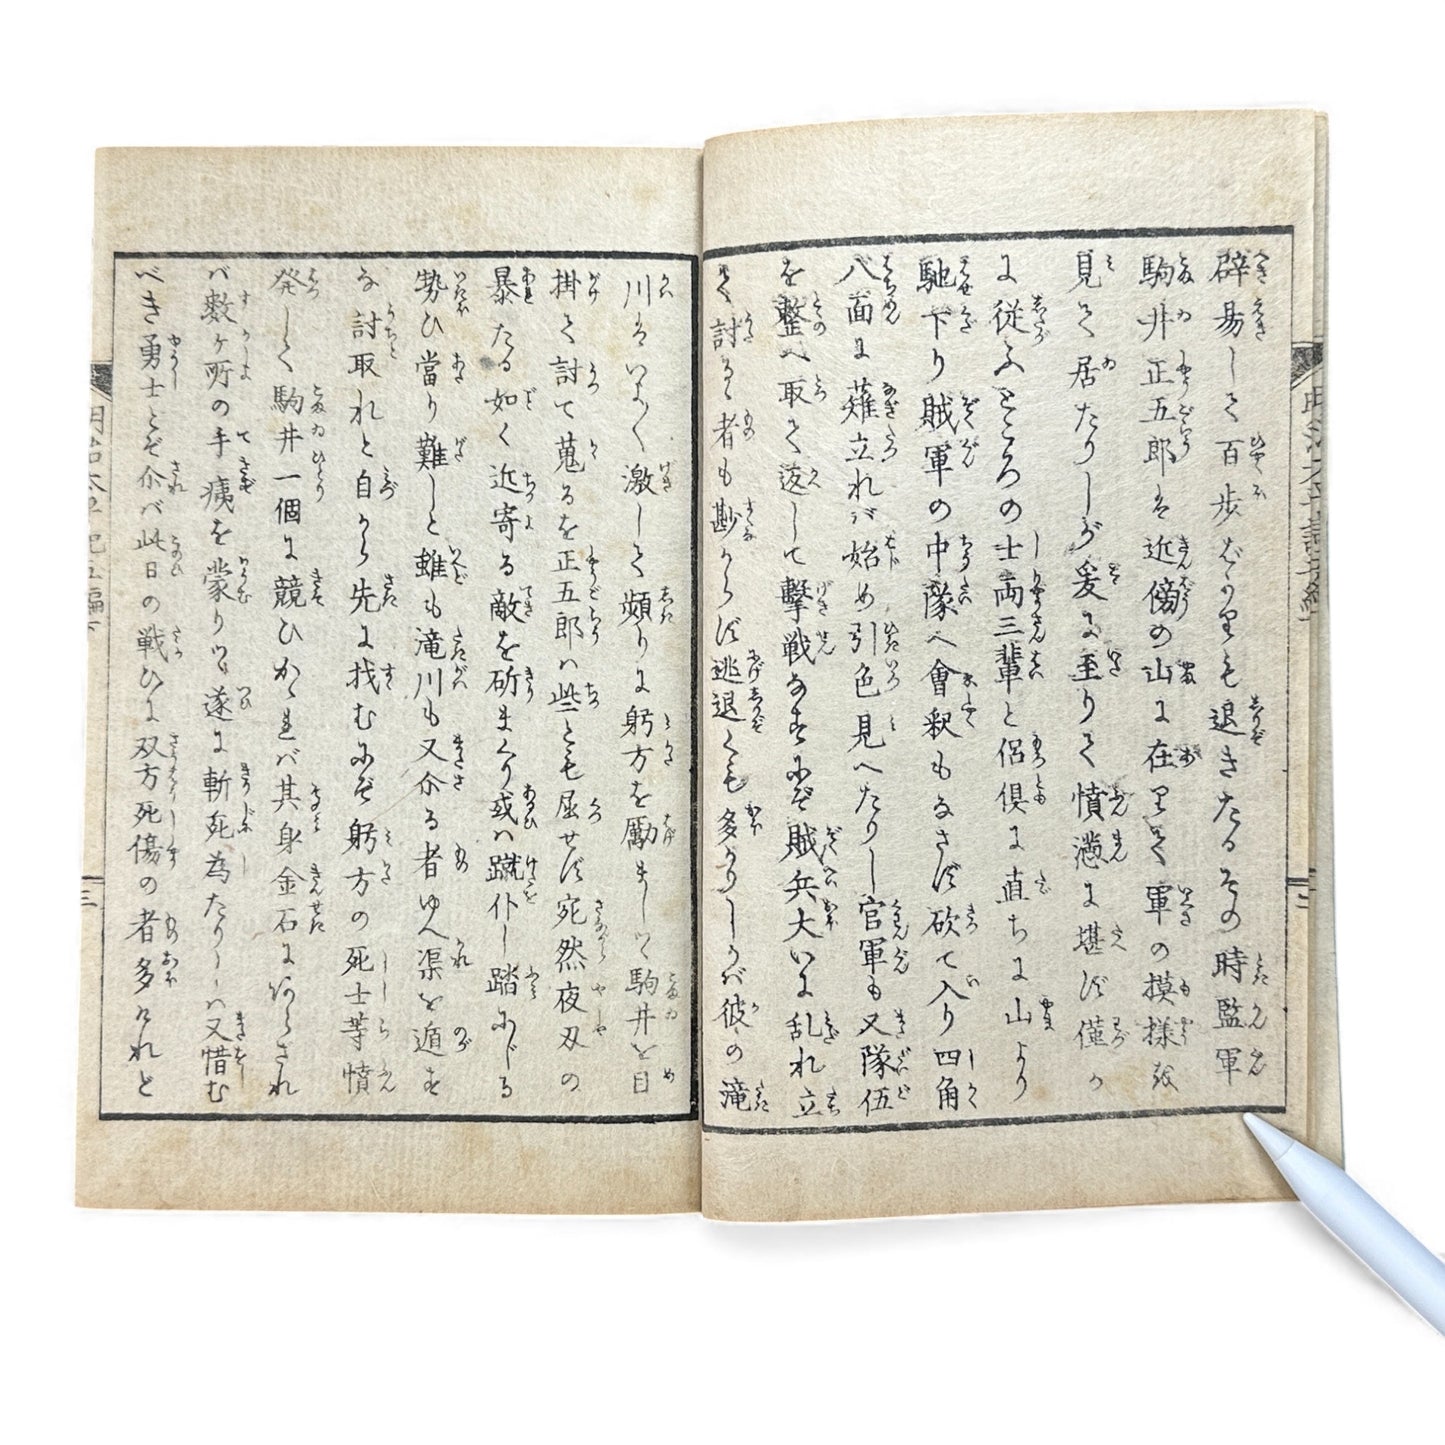 辟易して百歩ばかりも退きたるその時監軍
駒井正五郎は近傍の山に在りて軍の摸様を
見て居たりしが爰に至りて憤懣に堪ず僅か
に従ふところの士両三輩と侶倶に直ちに山より
馳下り賊軍の中隊へ會釈もなさず砍て入り四角
八面に薙立れバ始め引色見へたりし官軍も又隊伍
を整へ取て返して撃戦なすにぞ賊兵大いに乱れ立
て討るゝ者も尠からず逃退くも多かりしかバ彼の滝
川はいよ〳〵激して頻りに躬方を励まして駒井を目
掛て討て蒐るを正五郎ハ些とも屈せず宛然夜刄の
暴たる如く近寄る敵を斫まくり或ハ蹴仆し踏にじる
勢ひ當り難しと雖も滝川も又尒る者ゆへ渠を遁す
な討取れと自から先に找むにぞ躬方の死士等憤
発して駒井一個に競ひかゝれバ其身金石にあらされ
バ數ヶ所の手痍を蒙りツヽ遂に斬死為たりしハ又惜む
べき勇士とぞ尒バ此日の戦ひに双方死傷の者多けれど
明治太平記五編下
三